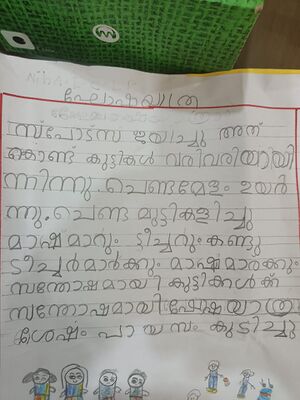 ഘോഷയാത്ര
സ്പോട്സ് ജയിച്ചു അത്
കൊണ്ട് കുട്ടികൾ വരിവരിയായി
ന്നിന്നു. ചെണ്ടമേളം ഉയർ
ന്നു. ചെണ്ട മുട്ടികളിച്ചു
മാഷ്മാറും ടീച്ചറും കണ്ടു
ടീച്ചർമാർക്കും മാഷ്മാരക്കും
സന്തോഷമായി കുട്ടികൾക്ക്
സന്തോഷമായി ഘോഷയാത്ര
ശേഷം പായസം കുടിച്ചു